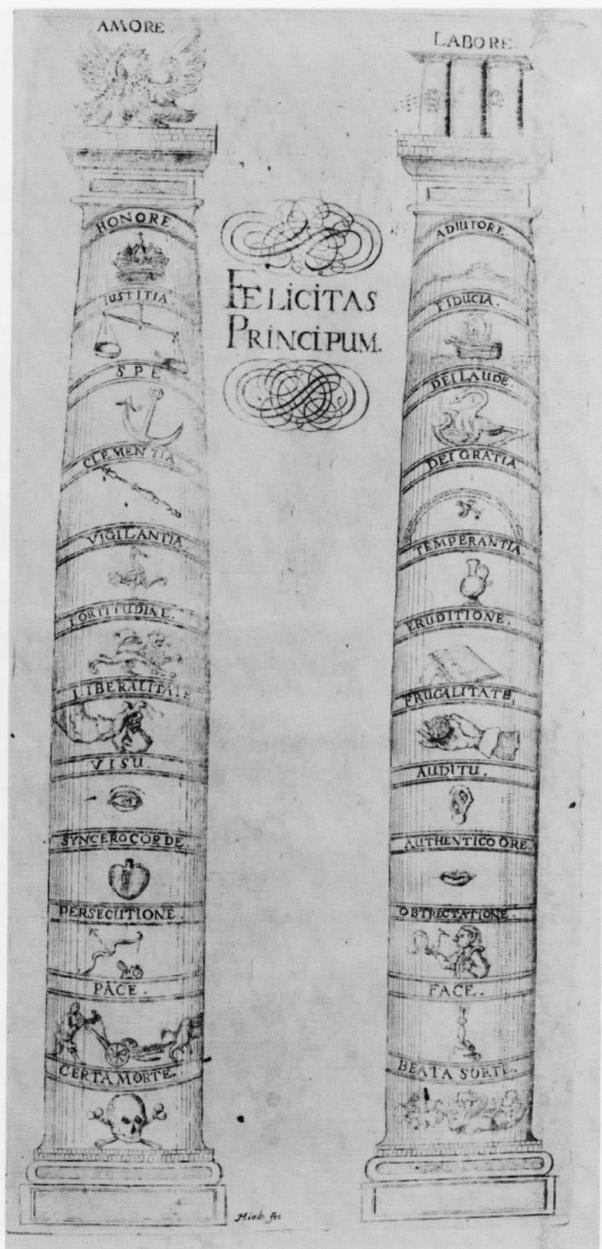 AMORE.
HONORE.
IUSTITIA.
SPE
CLEMENTIA
VIGILANTIA
FORTITUDINE.
LIBERALITATE
VISU.
SYNCERO CORDE.
PERSECUTIONE.
PACE.
CERTA MORTE.
FELICITAS
PRINCIPUM.
LABORE.
ADIUTORE
FIDUCIA.
DEI LAUDE
DEI GRATIA
TEMPERANTIA
ERUDITIONE.
FRUGALITATE,
AUDITU.
AUTHENTICO ORE.
OBTRECTATIONE.
FACE.
BEATA SORTE.
Hieb. fec